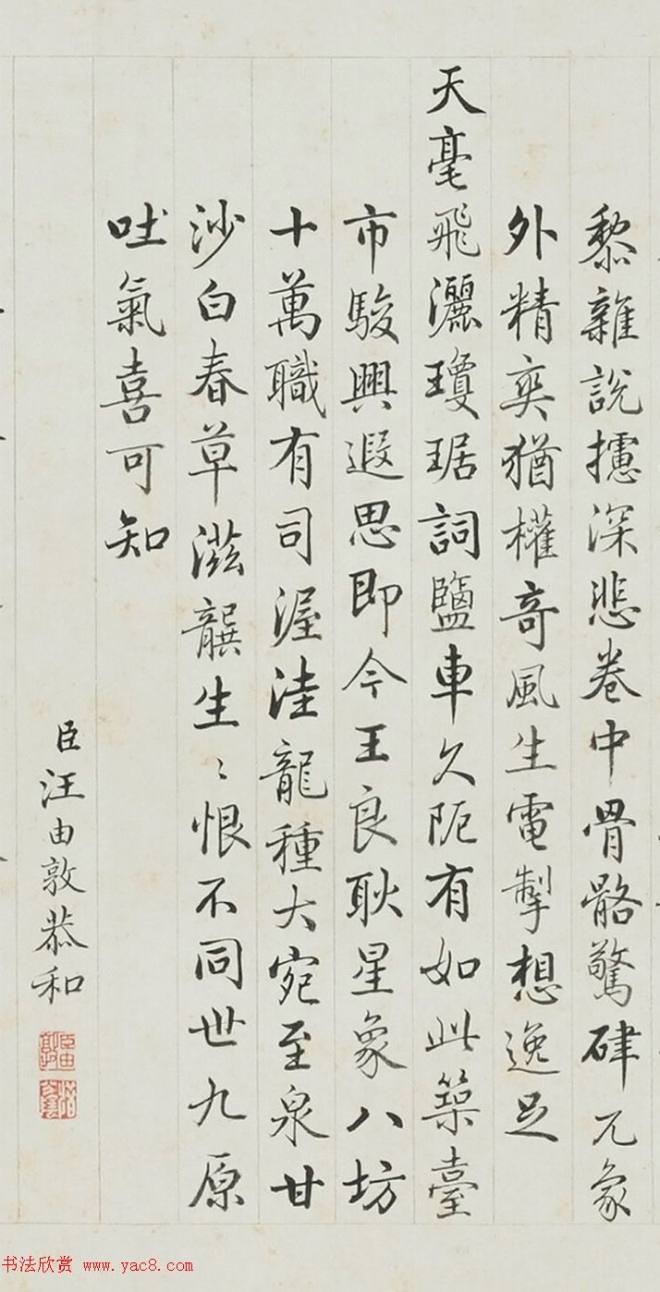 黎雜說攄深悲卷中骨骼驚硉兀象
外精奕猶權奇風生電掣想逸足
天毫飛灑瓊琚詞鹽車久阨有如此築臺
市駿興遐思即今王良耿星象八坊
十萬職有司渥洼龍種大宛至泉甘
沙白春草滋龔生〻恨不同世九原
吐氣喜可知
臣汪由敦恭和
书法欣赏 www.yac8.com